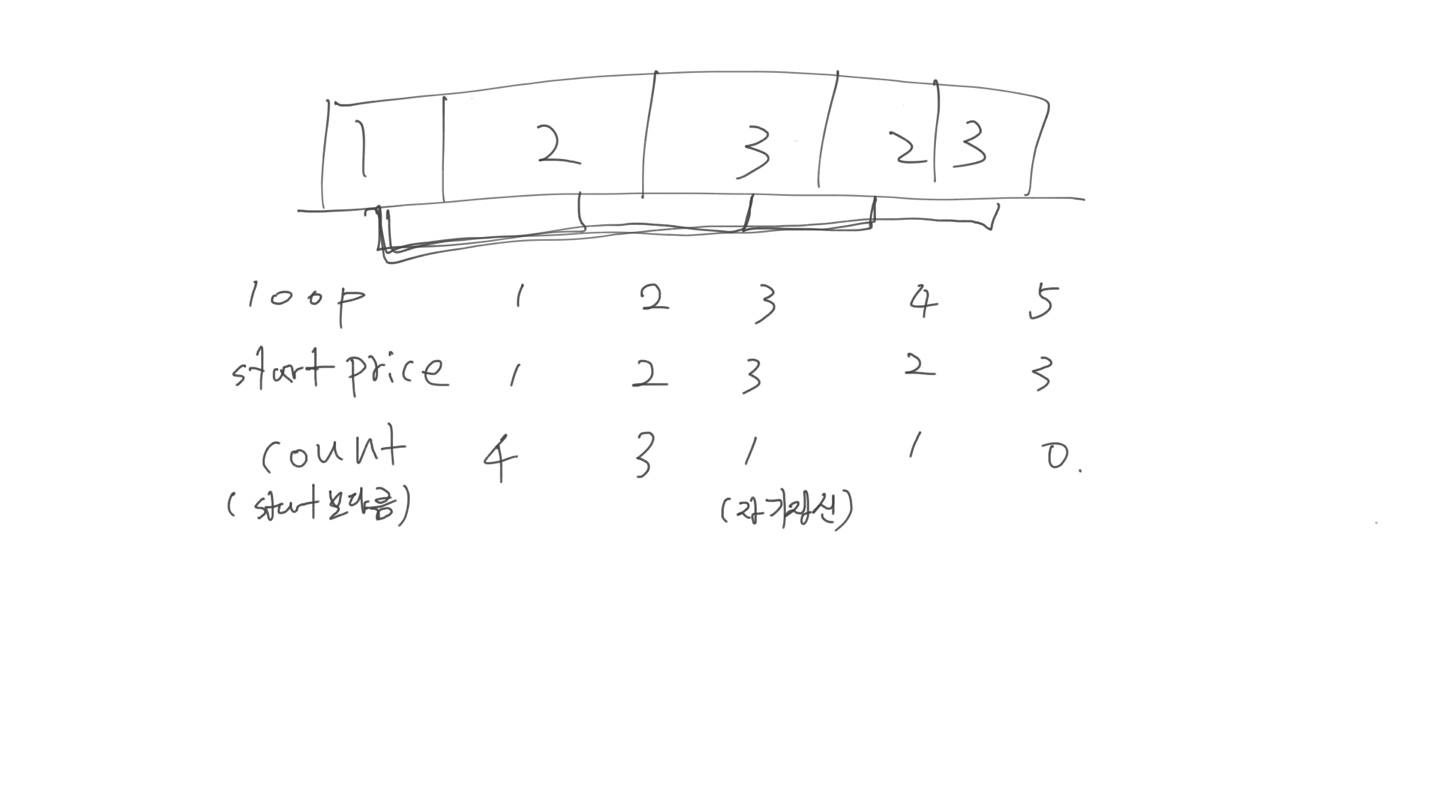 1 2 3 2 3
loop 1 2 3 4 5
start price 1 2 3 2 3
count 4 3 1 1 0.
(start보다큼) (자기자신)